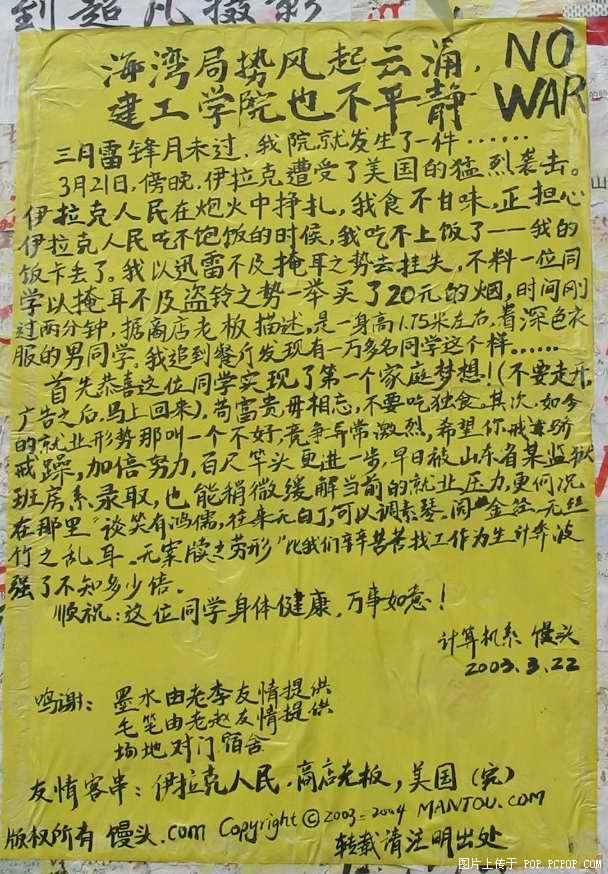 到超凡摄影
海湾局势风起云涌,
建工学院也不平静
NO
WAR
三月雷锋月未过,我院就发生了一件……
3月21日,傍晚,伊拉克遭受了美国的猛烈袭击。
伊拉克人民在炮火中挣扎,我食不甘味,正担心
伊拉克人民吃不饱饭的时候,我吃不上饭了——我的
饭卡丢了。我以迅雷不及掩耳之势去挂失,不料一位同
学以掩耳不及盗铃之势一举买了20元的烟,时间刚
过两分钟,据商店老板描述,是一身高1.75米左右,着深色衣
服的男同学。我追到餐厅发现有一万多名同学这个样……
首先恭喜这位同学实现了第一个家庭梦想!(不要走开,
广告之后,马上回来),苟富贵毋相忘,不要吃独食。其次,如今
的就业形势那叫一个不好,竞争异常激烈,希望你戒骄
戒躁,加倍努力,百尺竿头更进一步,早日被山东省某监狱
班房系录取,也能稍微缓解当前的就业压力,更何况
在那里"谈笑有鸿儒,往来无白丁,可以调素琴、阅金经、无丝
竹之乱耳、无案牍之劳形"比我们辛辛苦苦找工作为生计奔波
强了不知多少倍。
顺祝:这位同学身体健康,万事如意!
计算机系 馒头
2003.3.22
鸣谢:墨水由老李友情提供
毛笔由老赵友情提供
场地对门宿舍
友情客串:伊拉克人民,商店老板,美国(完)
版权所有 馒头.com Copyright ©2003-2004 MANTOU.COM
转载请注明出处
图片上传于 POP.PCPOP.COM